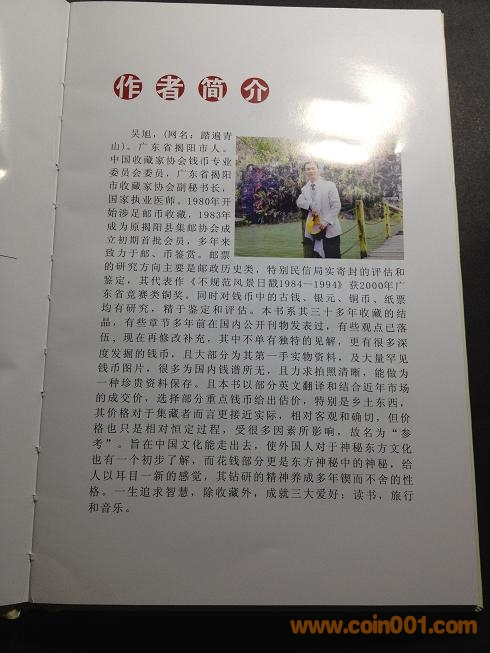 作者简介
吴旭，(网名：踏遍青
山)。广东省揭阳市人。
中国收藏家协会钱币专业
委员会委员，广东省揭阳
市收藏家协会副秘书长，
国家执业医师。1980年开
始涉足邮币收藏，1983年
成为原揭阳县集邮协会成
立初期首批会员，多年来
致力于邮、币鉴赏。邮票
的研究方向主要是邮政历史类，特别民信局实寄封的评估和
鉴定，其代表作《不规范风景日戳1984—1994》获2000年广
东省竞赛类铜奖。同时对钱币中的古钱、银元、铜币、纸票
均有研究，精于鉴定和评估。本书系其三十多年收藏的结
晶，有些章节多年前在国内公开刊物发表过，有些观点已落
伍，现在再修改补充，其中不单有独特的见解，更有很多深
度发掘的钱币，且大部分为其第一手实物资料，及大量罕见
钱币图片，很多为国内钱谱所无，且力求拍照清晰，能做为
一种珍贵资料保存。且本书以部分英文翻译和结合近年市场
的成交价，选择部分重点钱币给出估价，特别是乡土东西，
其价格对于集藏者而言更接近实际，相对客观和确切，但价
格也只是相对恒定过程，受很多因素所影响，故名为“参
考”。旨在中国文化能走出去，使外国人对于神秘东方文化
也有一个初步了解，而花钱部分更是东方神秘中的神秘，给
人以耳目一新的感觉，其钻研的精神养成多年锲而不舍的性
格。一生追求智慧，除收藏外，成就三大爱好：读书，旅行
和音乐。
www.coin001.com